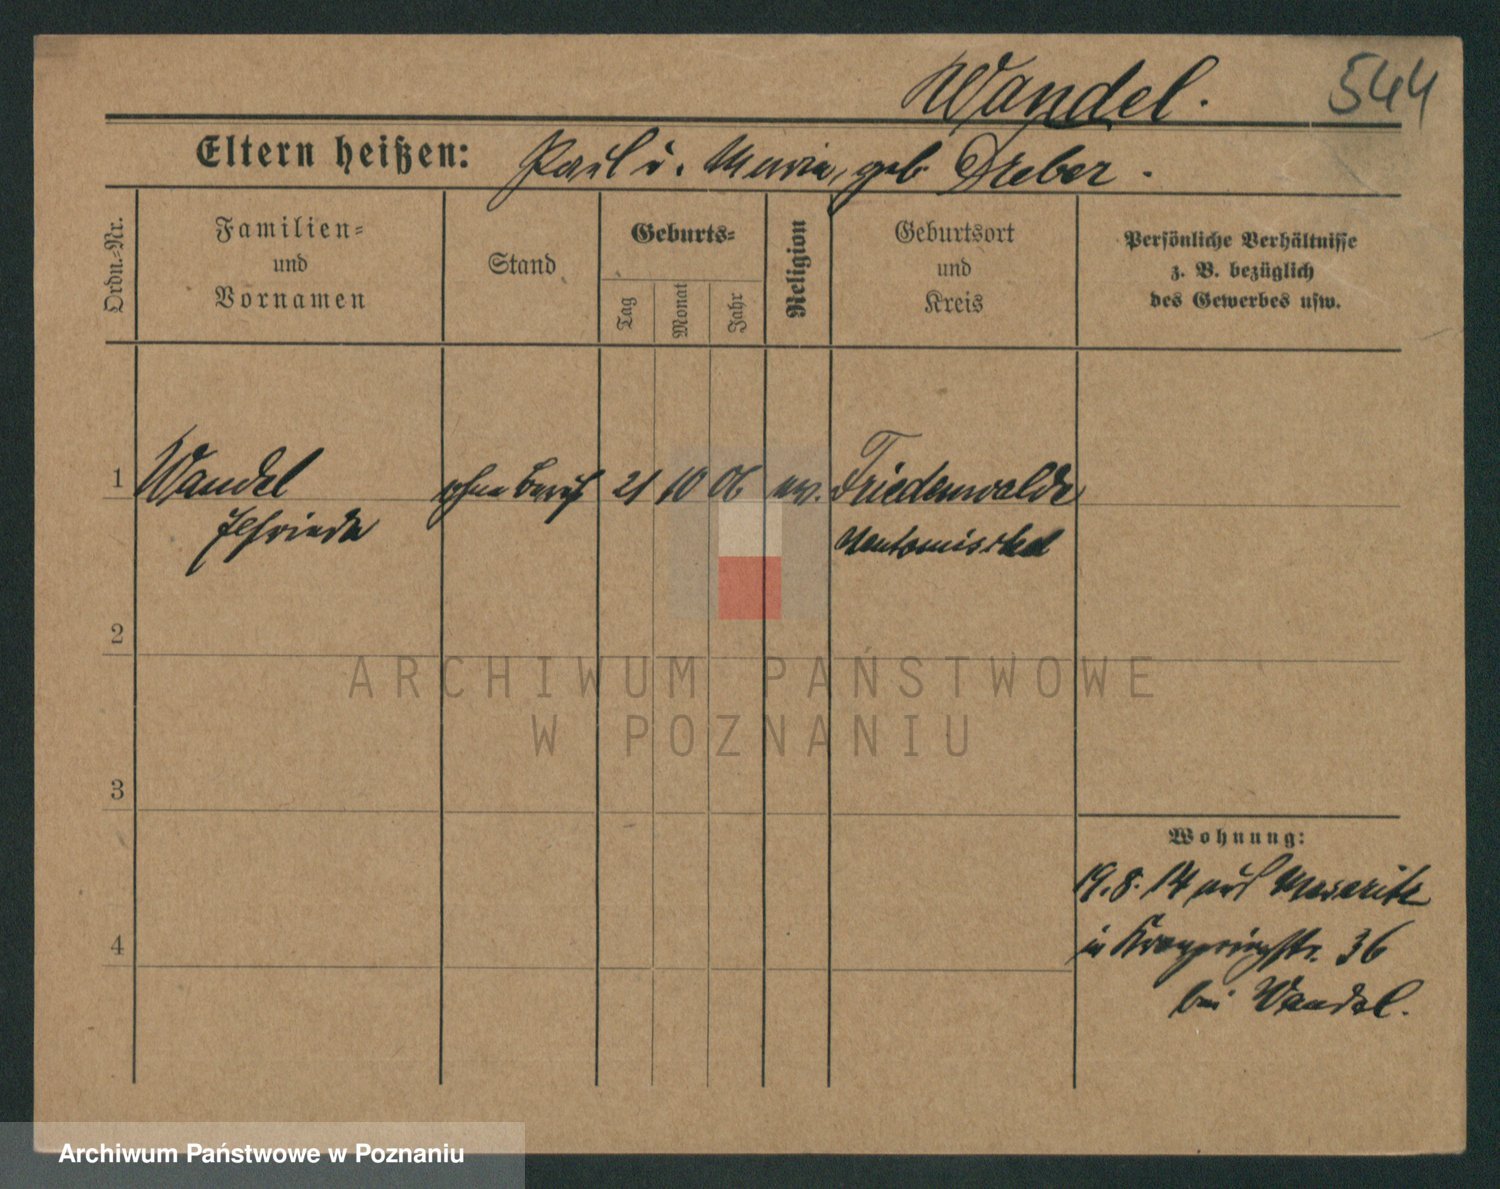 Wandel. 544
Eltern heißen: Paul u. Maria, geb. Dreber.
Ordn.-Nr.
Familien-
und
Vornamen
Stand
Geburts-
Tag
Monat
Jahr
Religion
Geburtsort
und
Kreis
Persönliche Verhältnisse
z. B. bezüglich
des Gewerbes usw.
1 Wandel ohne Beruf 21 10 06 ev. Friedenwalde
Elfriede Neutomischel
2
3
4
Wohnung:
19.8.14 aus Meseritz
in Kronprinzstr. 36
bei Wandel.
ARCHIWUM PAŃSTWOWE
W POZNANIU
Archiwum Państwowe w Poznaniu